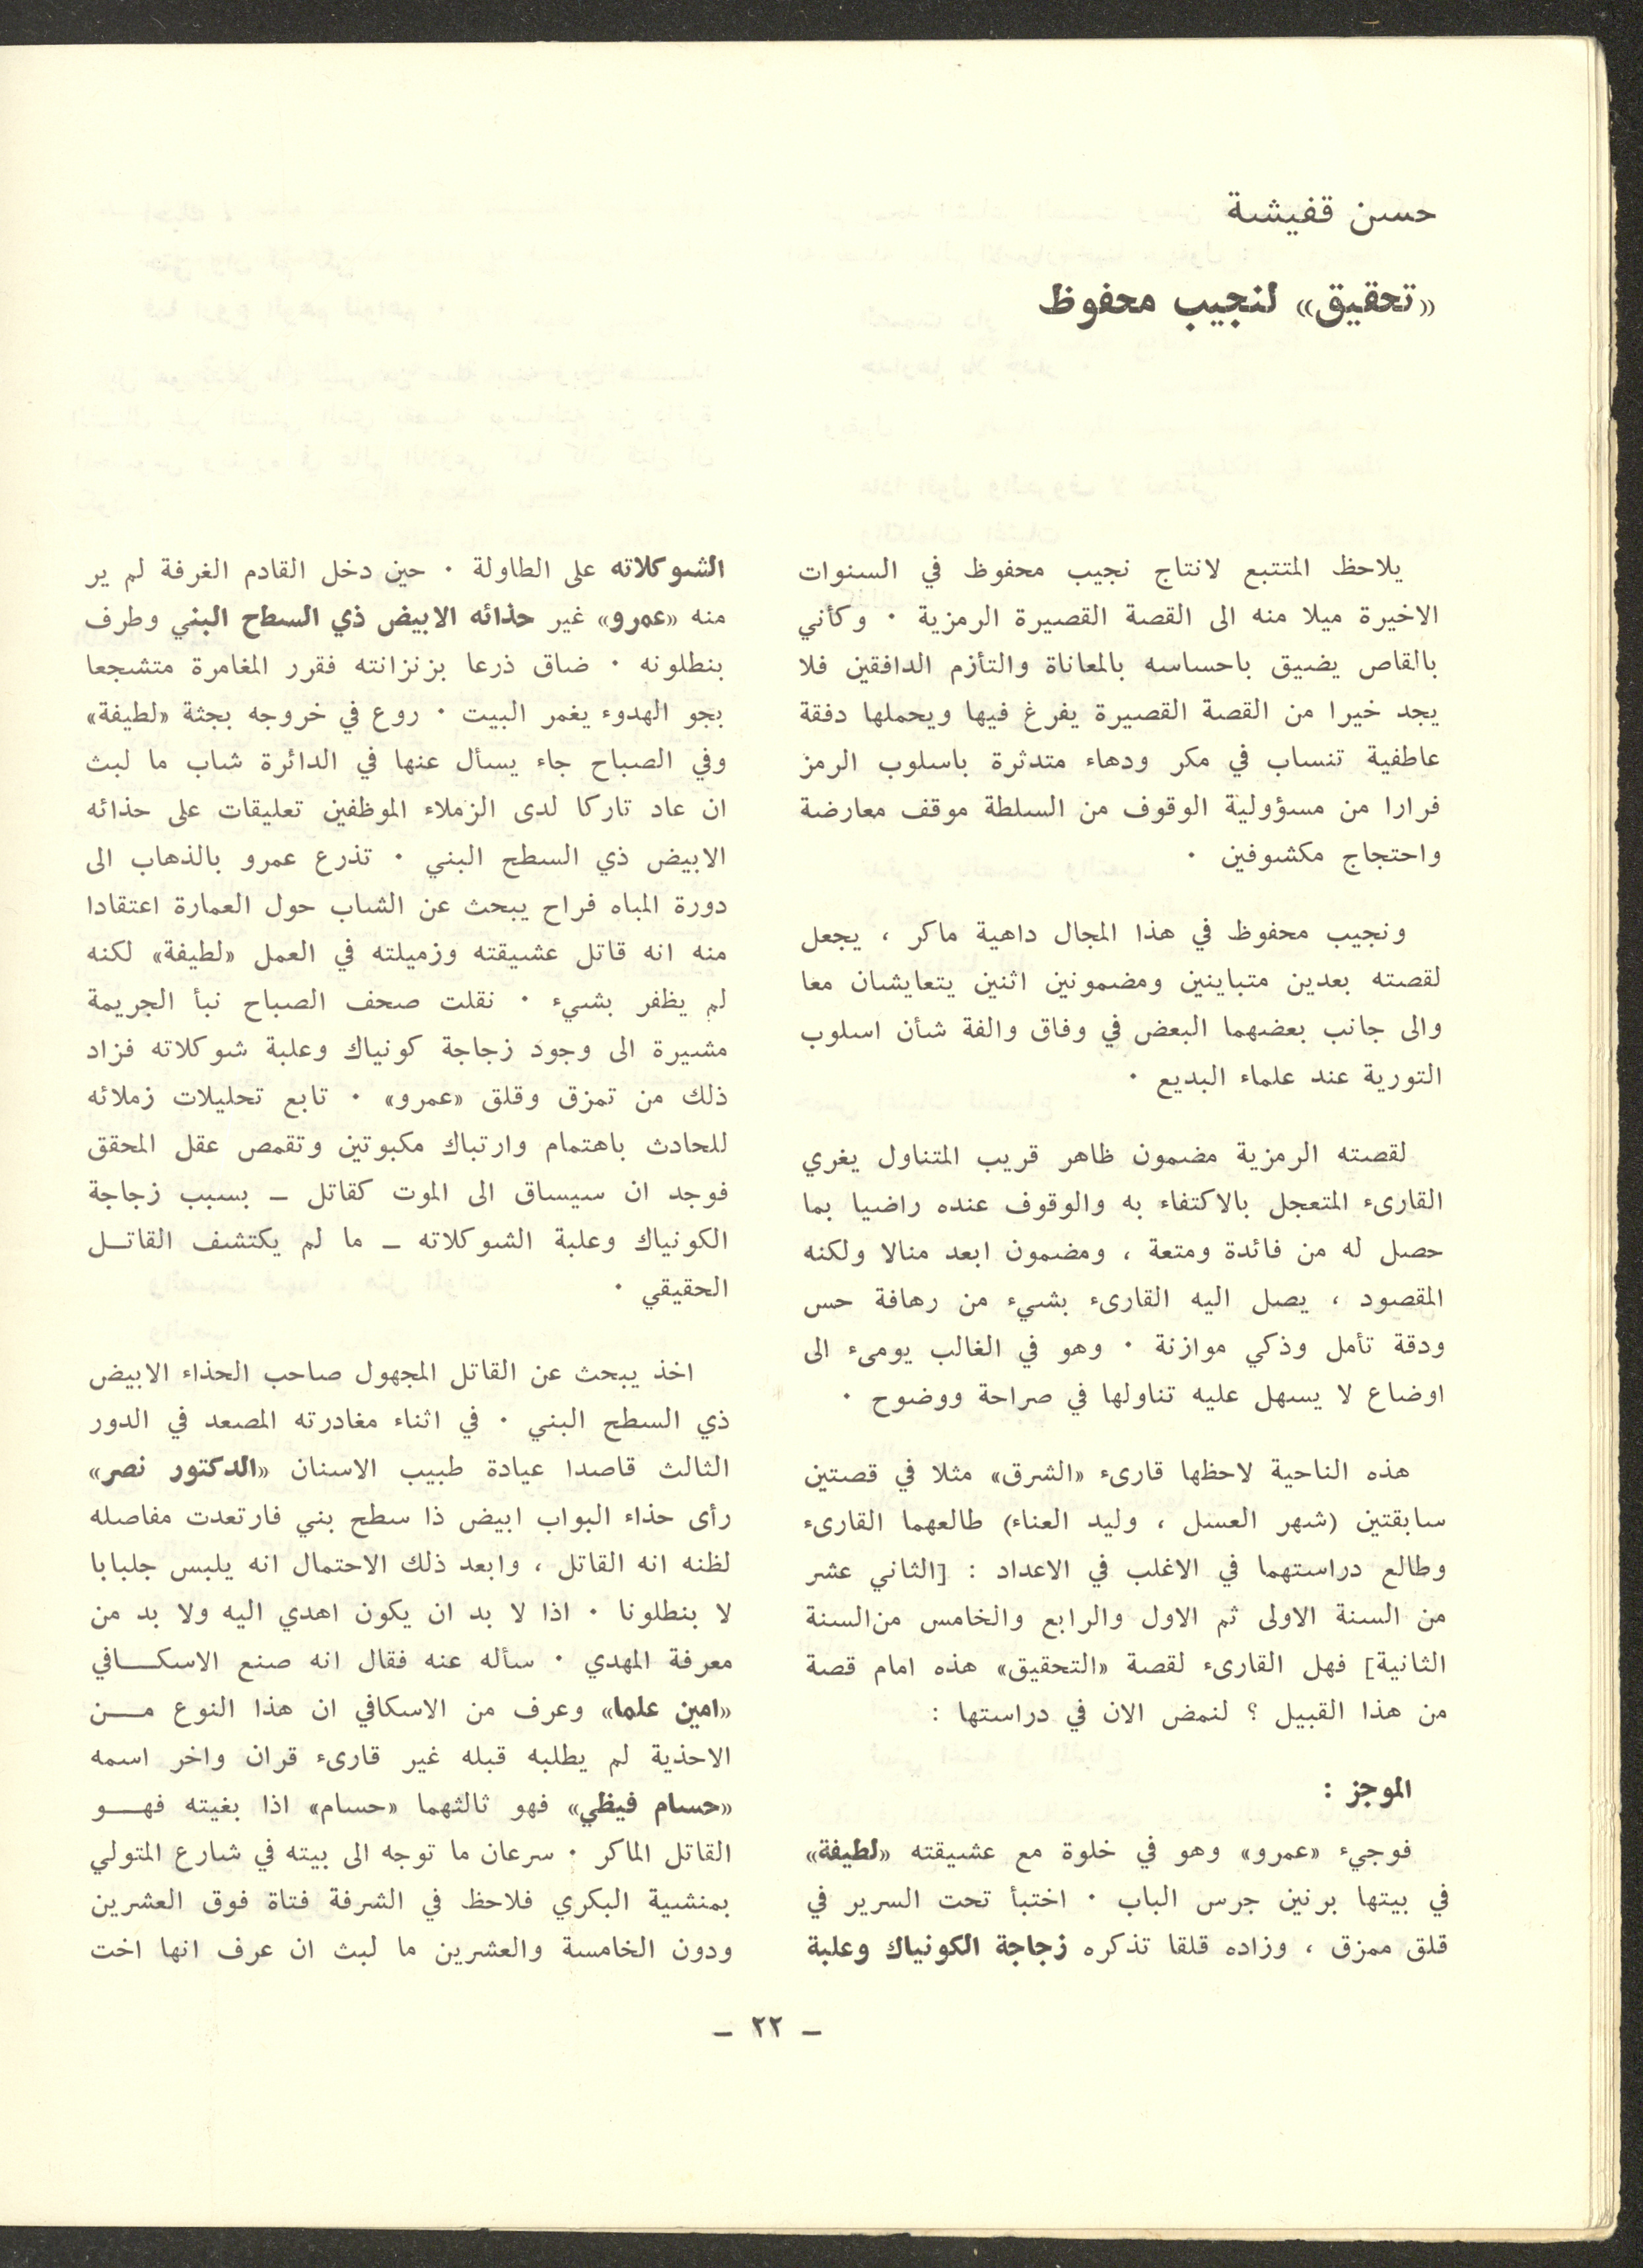 حسن قفيشة
«تحقيق» لنجيب محفوظ
يلاحظ المتتبع لانتاج نجيب محفوظ في السنوات
الاخيرة ميلا منه الى القصة القصيرة الرمزية . وكأني
بالقاص يضيق باحساسه بالمعاناة والتأزم الدافقين فلا
يجد خيرا من القصة القصيرة يفرغ فيها ويحملها دفقة
عاطفية تنساب في مكر ودهاء متدثرة باسلوب الرمز
فرارا من مسؤولية الوقوف من السلطة موقف معارضة
واحتجاج مكشوفين .
ونجيب محفوظ في هذا المجال داهية ماكر ، يجعل
لقصته بعدين متباينين ومضمونين اثنين يتعايشان معا
والى جانب بعضهما البعض في وفاق والفة شأن اسلوب
التورية عند علماء البديع .
لقصته الرمزية مضمون ظاهر قريب المتناول يغري
القارىء المتعجل بالاكتفاء به والوقوف عنده راضيا بما
حصل له من فائدة ومتعة ، ومضمون ابعد منالا ولكنه
المقصود ، يصل اليه القارىء بشيء من رهافة حس
ودقة تأمل وذكي موازنة . وهو في الغالب يومىء الى
اوضاع لا يسهل عليه تناولها في صراحة ووضوح .
هذه الناحية لاحظها قارىء «الشرق» مثلا في قصتين
سابقتين (شهر العسل ، وليد العناء) طالعهما القارىء
وطالع دراستهما في الاغلب في الاعداد : [الثاني عشر
من السنة الاولى ثم الاول والرابع والخامس من السنة
الثانية] فهل القارىء لقصة «التحقيق» هذه امام قصة
من هذا القبيل ؟ لنمض الان في دراستها :
الموجز :
فوجيء «عمرو» وهو في خلوة مع عشيقته «لطيفة»
في بيتها برنين جرس الباب . اختبأ تحت السرير في
قلق ممزق ، وزاده قلقا تذكره زجاجة الكونياك وعلبة
الشوكلاته على الطاولة . حين دخل القادم الغرفة لم ير
منه «عمرو» غير حذائه الابيض ذي السطح البني وطرف
بنطلونه . ضاق ذرعا بزنزانته فقرر المغامرة متشجعا
بجو الهدوء يغمر البيت . روع في خروجه بجثة «لطيفة»
وفي الصباح جاء يسأل عنها في الدائرة شاب ما لبث
ان عاد تاركا لدى الزملاء الموظفين تعليقات على حذائه
الابيض ذي السطح البني . تذرع عمرو بالذهاب الى
دورة المياه فراح يبحث عن الشاب حول العمارة اعتقادا
منه انه قاتل عشيقته وزميلته في العمل «لطيفة» لكنه
لم يظفر بشيء . نقلت صحف الصباح نبأ الجريمة
مشيرة الى وجود زجاجة كونياك وعلبة شوكلاته فزاد
ذلك من تمزق وقلق «عمرو» . تابع تحليلات زملائه
للحادث باهتمام وارتباك مكبوتين وتقمص عقل المحقق
فوجد ان سيساق الى الموت كقاتل – بسبب زجاجة
الكونياك وعلبة الشوكلاته – ما لم يكتشف القاتــل
الحقيقي .
اخذ يبحث عن القاتل المجهول صاحب الحذاء الابيض
ذي السطح البني . في اثناء مغادرته المصعد في الدور
الثالث قاصدا عيادة طبيب الاسنان «الدكتور نصر»
رأى حذاء البواب ابيض ذا سطح بني فارتعدت مفاصله
لظنه انه القاتل ، وابعد ذلك الاحتمال انه يلبس جلبابا
لا بنطلونا . اذا لا بد ان يكون اهدي اليه ولا بد من
معرفة المهدي . سأله عنه فقال انه صنع الاسكـــافي
«امين علما» وعرف من الاسكافي ان هذا النوع مـــن
الاحذية لم يطلبه قبله غير قارىء قران واخر اسمه
«حسام فيظي» فهو ثالثهما «حسام» اذا بغيته فهـــو
القاتل الماكر . سرعان ما توجه الى بيته في شارع المتولي
بمنشية البكري فلاحظ في الشرفة فتاة فوق العشرين
ودون الخامسة والعشرين ما لبث ان عرف انها اخت
– ٢٢ –